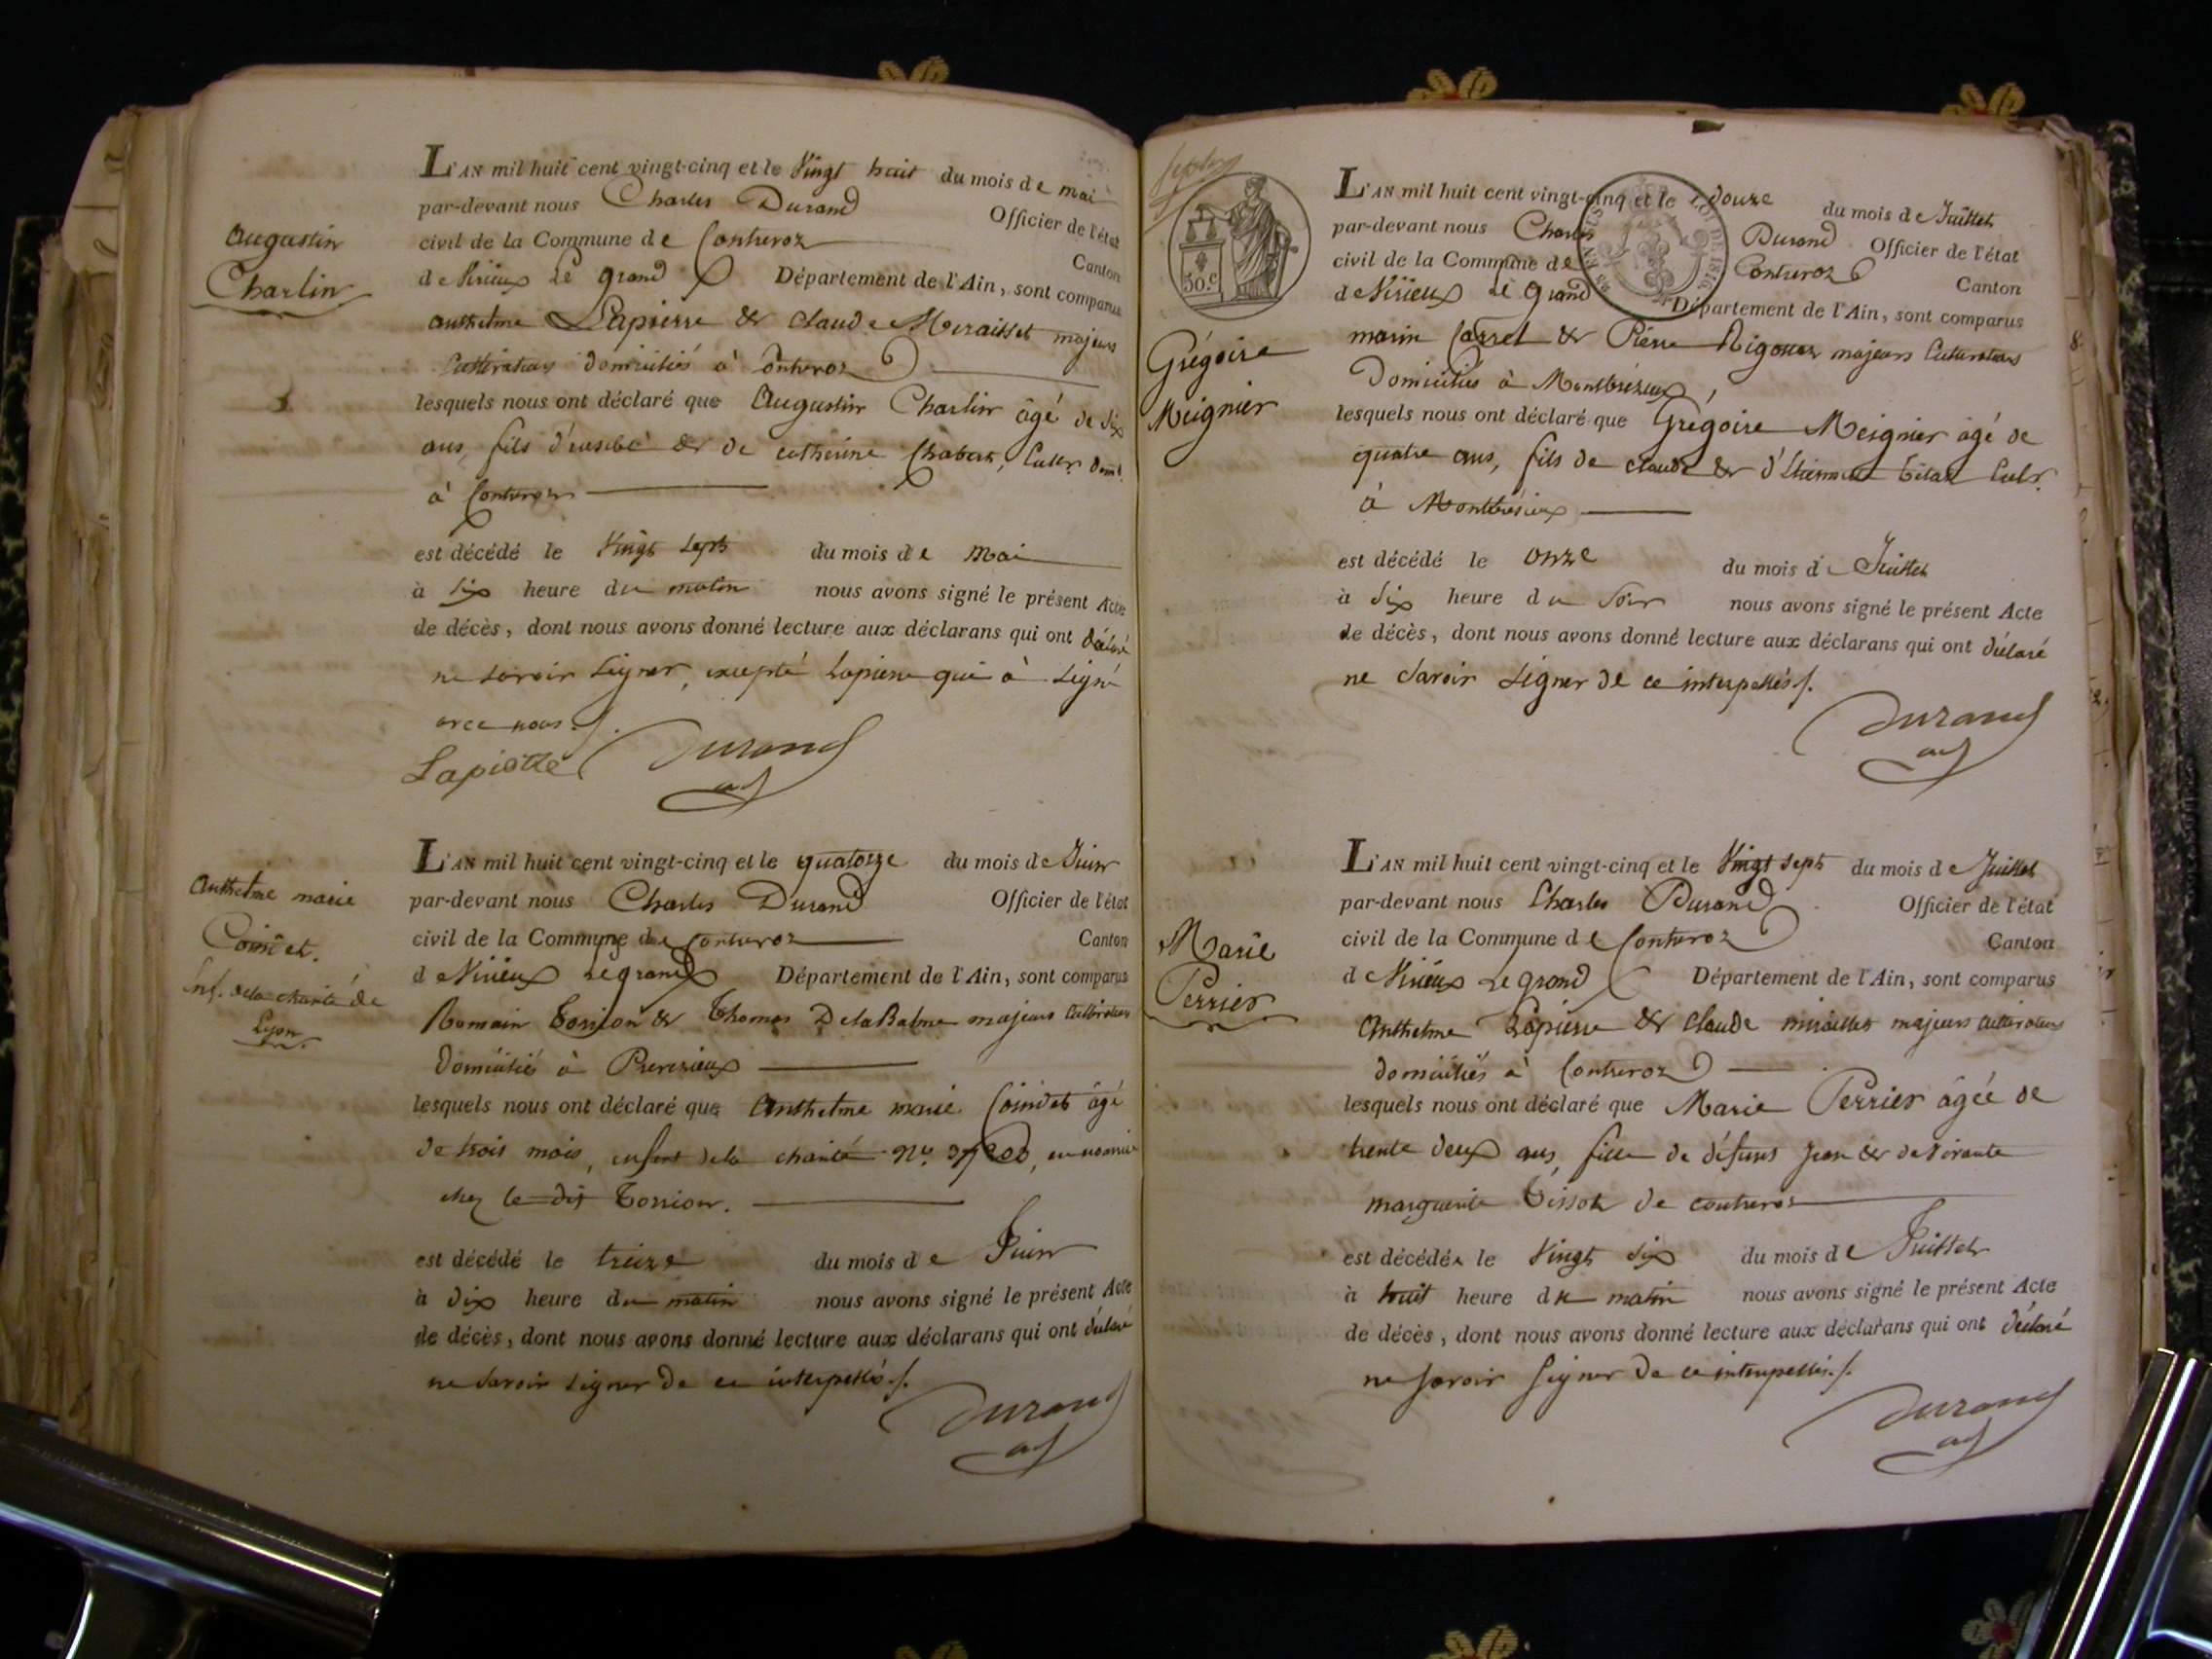 Augustin
Charlin
L'AN mil huit cent vingt-cinq et le Vingt huit du mois de mai
par-devant nous Charles Durand Officier de l'état
civil de la Commune de Contrevoz Canton
de Virieux Le grand Département de l'Ain, sont comparus
anthelme Lapierre & claude majeurs
Cultivateurs domiciliés à Contrevoz
lesquels nous ont déclaré que Augustin Charlin âgé de six
ans, fils d'eusebe & de catherine Chabert, Cultr. domt.
à Contrevoz
est décédé le Vingt sept du mois de mai
à six heure du matin nous avons signé le présent Acte
de décès, dont nous avons donné lecture aux déclarans qui ont déclaré
ne savoir signer, excepté Lapierre qui à signé
avec nous ./.
Lapierre Durand
adj
anthelme marie
Coindet.
Enf. de la charité de
Lyon
L'AN mil huit cent vingt-cinq et le quatorze du mois de Juin
par-devant nous Charles Durand Officier de l'état
civil de la Commune de Contrevoz Canton
de Virieux Le grand Département de l'Ain, sont comparus
Romain & Thomas DelaBalme majeurs Cultivateurs
domiciliés à
lesquels nous ont déclaré que Anthelme marie Coindet âgé
de trois mois, enfant de la charité No. en nourrice
chez le dit
est décédé le treize du mois de Juin
à dix heure du matin nous avons signé le présent Acte
de décès, dont nous avons donné lecture aux déclarans qui ont déclaré
ne savoir signer de ce interpellés ./.
Durand
adj
50.c
LOI DE 1816
Grégoire
Meignier
L'AN mil huit cent vingt-cinq et le douze du mois de Juillet
par-devant nous Charles Durand Officier de l'état
civil de la Commune de Contrevoz Canton
de Virieux Le grand Département de l'Ain, sont comparus
marin Carrel & Pierre majeurs Cultivateurs
Domiciliés à Montbrézieux
lesquels nous ont déclaré que Grégoire Meignier âgé de
quatre ans, fils de claude & d'Etiennette Cultr.
à Montbrésieux
est décédé le onze du mois de Juillet
à six heure du soir nous avons signé le présent Acte
de décès, dont nous avons donné lecture aux déclarans qui ont déclaré
ne savoir signer de ce interpellés ./.
Durand
adj
Marie
Perrier
L'AN mil huit cent vingt-cinq et le Vingt sept du mois de Juillet
par-devant nous Charles Durand Officier de l'état
civil de la Commune de Contrevoz Canton
de Virieux Le grand Département de l'Ain, sont comparus
Anthelme Lapierre & claude miraillet majeurs cultivateurs
domiciliés à Contrevoz
lesquels nous ont déclaré que Marie Perrier âgée de
trente deux ans, fille de défunt Jean & de vivante
marguerite Tissot de contrevoz
est décédée le Vingt six du mois de Juillet
à huit heure du matin nous avons signé le présent Acte
de décès, dont nous avons donné lecture aux déclarans qui ont déclaré
ne savoir signer de ce interpellés ./.
Durand
adj